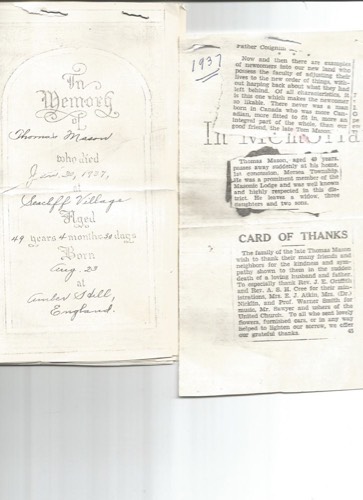 In
Memory
of
Thomas Mason
who died
Jan. 20, 1937,
at
Seacliff Village
Aged
49 years 4 months 30 days
Born
Aug. 23
at
England.
1937
Father Coughlin
Now and then there are examples
of newcomers into our new land who
possess the faculty of adjusting their
lives to the new order of things, with-
out harping back about what they had
left behind. Of all characteristics, it
is this one which makes the newcomer
so likable. There never was a man
born in Canada who was more Can-
adian, more fitted to fit in more an
integral part of the whole, than our
good friend, the late Tom Mason.
In Memoria
Thomas Mason, aged 49 years,
passes away suddenly at his home,
1st concession, Mersea Township.
He was a prominent member of the
Masonic Lodge and was well known
and highly respected in this dis-
trict. He leaves a widow, three
daughters and two sons.
CARD OF THANKS
The family of the late Thomas Mason
wish to thank their many friends and
neighbors for the kindness and sym-
pathy shown to them in the sudden
death of a loving husband and father.
To especially thank Rev. J. E. Griffith
and Rev. A. S. H. Cree for their min-
istrations, Mrs. E. J. Atkin, Mrs. (Dr.)
Nicklin, and Prof. Warner Smith for
music, Mr. Sawyer and others of the
United Church. To all who sent lovely
flowers, furnished cars, or in any way
helped to lighten our sorrow, we offer
our grateful thanks.